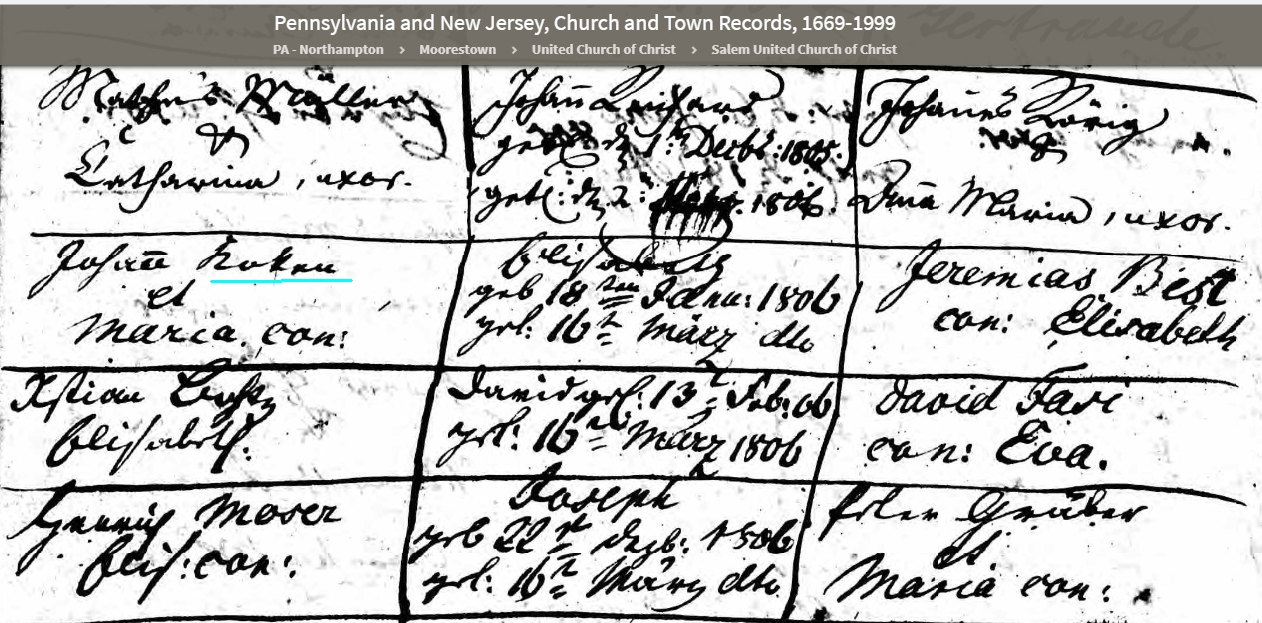 Pennsylvania and New Jersey, Church and Town Records, 1669-1999
PA - Northampton > Moorestown > United Church of Christ > Salem United Church of Christ
Gertraude
Müller
&
Catharina, uxor.
Johañ
geb: d 1t Decbr: 1805.
get: d 2: 1806.
Johañes
Maria, uxor.
Johañ Koken
et
Maria. con:
Elisabeth
geb 18ten Janu: 1806
get: 16t März dto
Jeremias Best
con: Elisabeth
Xstian
Elisabeth.
David geb: 13t Feb: 06
get: 16t März 1806
David
con: Eva.
Henrich Moser
Elis: con:
Joseph
geb 22t dezb: 1806
get: 16t März dto
Peter Gruber
et
Maria con: